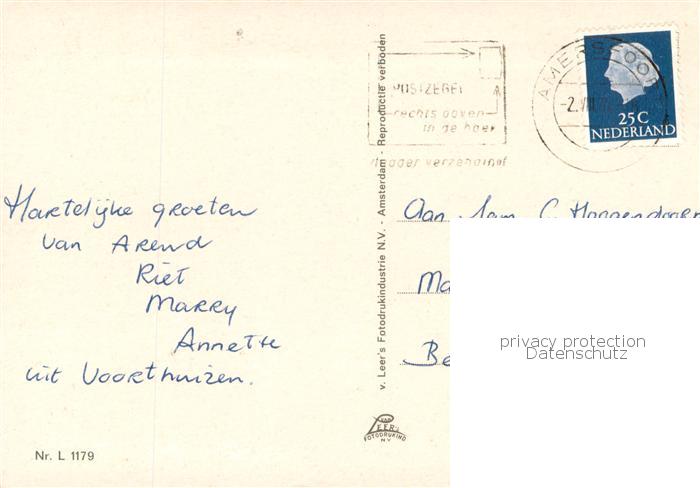 Hartelijke groeten
van Arend
Riet
Marry
Annette
uit Voorthuizen.
Nr. L 1179
v. Leer's Fotodrukindustrie N.V. - Amsterdam - Reproductie verboden
VAN
LEER'S
FOTODRUKIND
N.V.
POSTZEGEL
rechts boven
in de hoek
AMERSFOORT
25C
NEDERLAND
Aan Fam C.
Ma
Be
privacy protection
Datenschutz